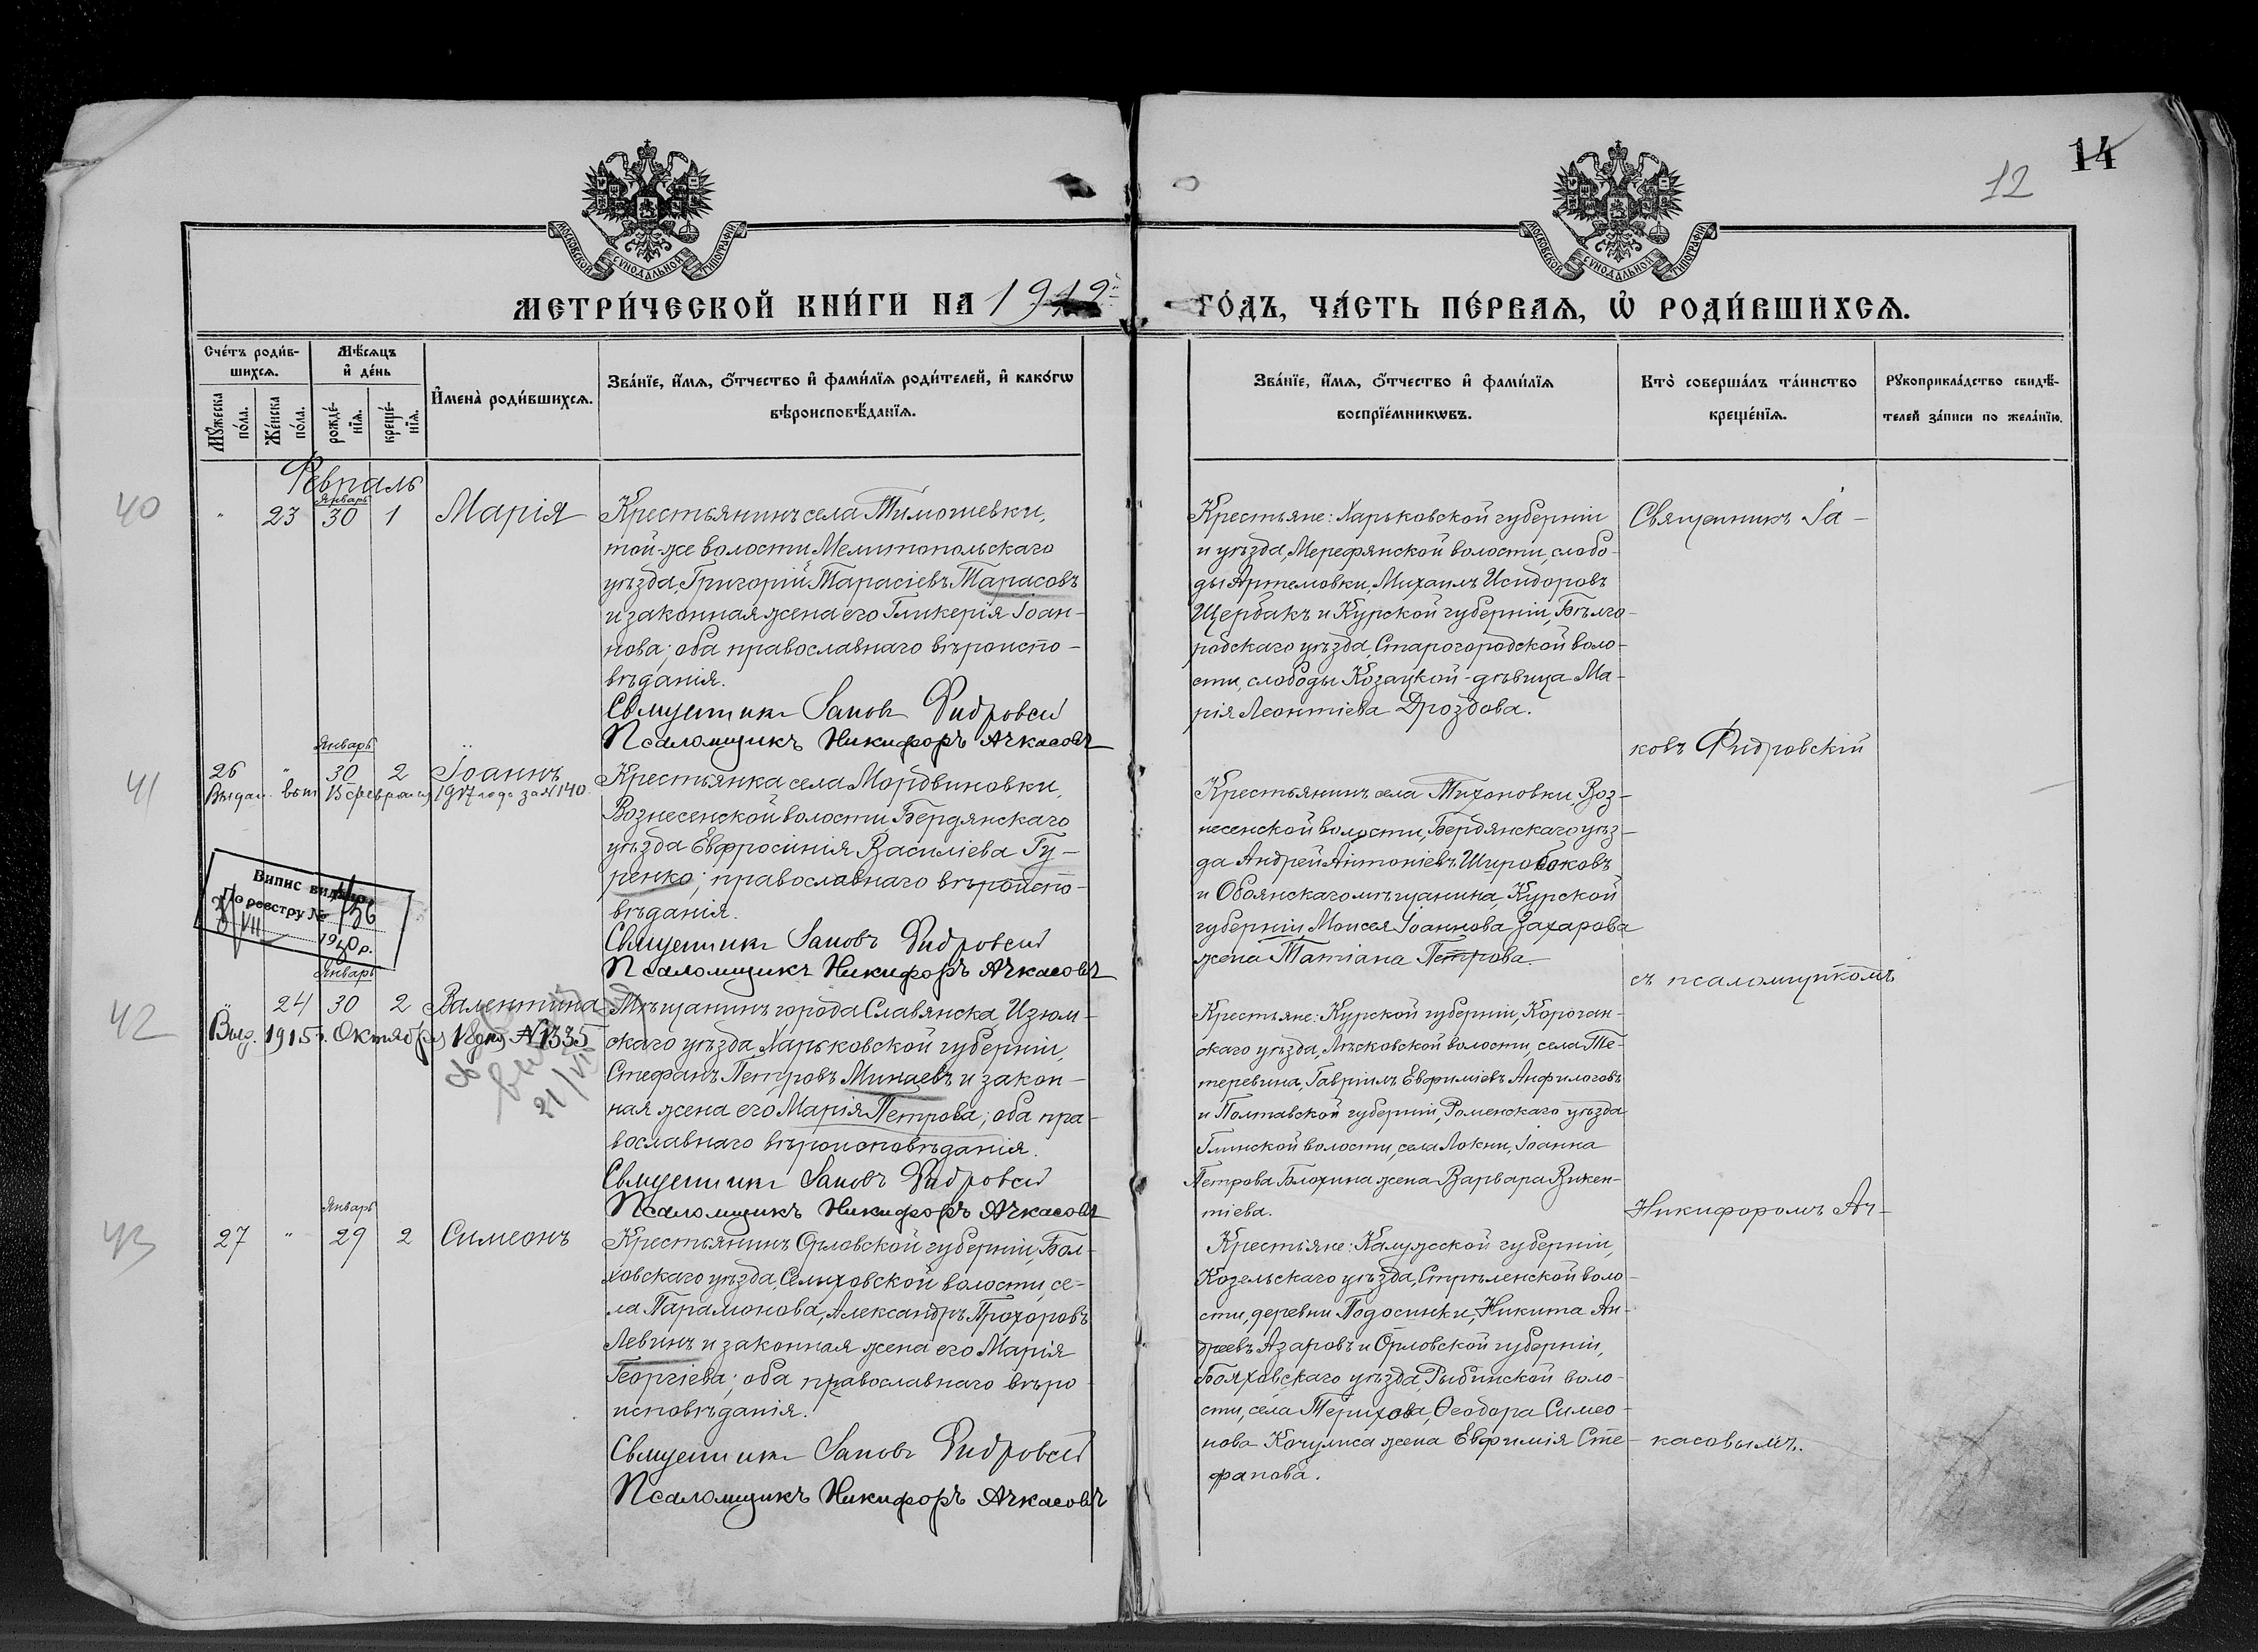 14
12
МОСКОВСКОЙ СѴНОДАЛЬНОЙ ТИПОГРАФІИ
МОСКОВСКОЙ СѴНОДАЛЬНОЙ ТИПОГРАФІИ
МЕТРИ́ЧЕСКОЙ КНИ́ГИ НА 1912й
ГО́ДЪ, ЧА́СТЬ ПЕ́РВАѦ, Ѽ РОДИ́ВШИХСѦ.
Сче́тъ роди́в-
шихсѧ.
Мѣ́сѧцъ
и҆ де́нь
Мꙋ́жеска
по́ла.
Же́нска
по́ла.
рожде́-
нїѧ.
креще́-
нїѧ.
И҆мена̀ роди́вшихсѧ.
Зва́нїе, и҆́мѧ, ѻ҆́тчество и҆ фами́лїѧ роди́телей, и҆ како́гѡ
вѣроисповѣ́данїѧ.
Зва́нїе, и҆́мѧ, ѻ҆́тчество и҆ фами́лїѧ
воспрїе́мникѡвъ.
Кто̀ соверша́лъ та́инство
креще́нїѧ.
Рꙋкоприкла́дство свидѣ́-
телей за́писи по жела́нїю.
Февраль
Январь
40
" 23 30 1 Марія
Крестьянинъ села Тимошевки,
той-же волости Мелитопольскаго
уѣзда, Григорій Тарасіевъ Тарасовъ
и законная жена его Гликерія Іоан-
нова; оба православнаго вѣроиспо-
вѣданія.
Священникъ Іаковъ Фидровскій
Псаломщикъ Никифоръ Ачкасовъ
Крестьяне: Харьковской губерніи
и уѣзда, Мерефянской волости, слобо-
ды Артемовки, Михаилъ Исидоровъ
Щербакъ и Курской губерніи, Бѣлго-
родскаго уѣзда, Старогородской воло-
сти, слободы Козацкой - дѣвица Ма-
рія Леонтіева Дроздова.
Священникъ Іа-
ковъ Фидровскій
Январь
41
26 " 30 2 Іоаннъ
Выдан. вып. 15 февраля 1917 года за № 140.
Випис видано
По реєстру № 1156
1940 р.
Крестьянка села Мордвиновки,
Вознесенской волости Бердянскаго
уѣзда Евфросинія Василіева Гу-
ренко; православнаго вѣроиспо-
вѣданія.
Священникъ Іаковъ Фидровскій
Псаломщикъ Никифоръ Ачкасовъ
Крестьянинъ села Тихоновки, Воз-
несенской волости, Бердянскаго уѣз-
да Андрей Антоніевъ Широбоковъ
и Обоянскаго мѣщанина, Курской
губерніи, Моисея Іоаннова Захарова
жена Татіана Петрова
съ псаломщикомъ
Январь
42
" 24 30 2 Валентина
Выд. 1915 г. Октября 18 дня № 1335
21/VII
Мѣщанинъ города Славянска, Изюм-
скаго уѣзда, Харьковской губерніи,
Стефанъ Петровъ Минаевъ и закон-
ная жена его Марія Петрова; оба пра-
вославнаго вѣроисповѣданія.
Священникъ Іаковъ Фидровскій
Псаломщикъ Никифоръ Ачкасовъ
Крестьяне: Курской губерніи, Корочан-
скаго уѣзда, Лѣсковской волости, села Те-
теревина, Гавріилъ Евфиміевъ Анфилоговъ
и Полтавской губерніи, Роменскаго уѣзда
Глинской волости, села Локни, Іоанна
Петрова Блохина жена Варвара Викен-
тіева.
Никифоромъ Ач-
Январь
43
27 " 29 2 Симеонъ
Крестьянинъ Орловской губерніи, Бол-
ховскаго уѣзда, Селиховской волости, се-
ла Парамонова, Александръ Прохоровъ
Левинъ и законная жена его Марія
Георгіева; оба православнаго вѣро-
исповѣданія.
Священникъ Іаковъ Фидровскій
Псаломщикъ Никифоръ Ачкасовъ
Крестьяне: Калужской губерніи,
Козельскаго уѣзда, Стрѣленской воло-
сти, деревни Подосинки, Никита Ан-
дреевъ Азаровъ и Орловской губерніи,
Болховскаго уѣзда, Рыбинской воло-
сти, села Терихова, Ѳеодора Симео-
нова Кочулиса жена Евфимія Сте-
фанова.
касовымъ.